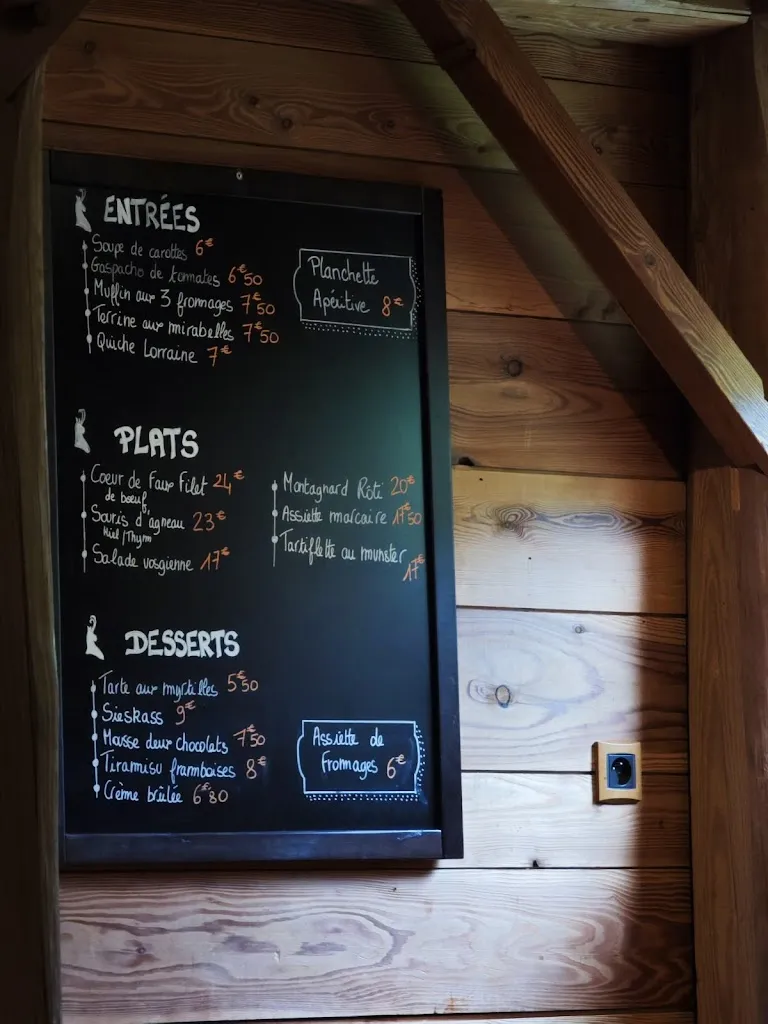 ENTRÉES
Soupe de carottes 6€
Gaspacho de tomates 6€50
Muffin aux 3 fromages 7€50
Terrine aux mirabelles 7€50
Quiche Lorraine 7€
Planchette
Apéritive 8€
PLATS
Coeur de Faux Filet 24€
de boeuf,
Souris d'agneau 23€
Miel/Thym
Salade vosgienne 17€
Montagnard Rôti 20€
Assiette marcaire 17€50
Tartiflette au munster
17€
DESSERTS
Tarte aux myrtilles 5€50
Sieskass 9€
Mousse deux chocolats 7€50
Tiramisu framboises 8€
Crème brûlée 6€80
Assiette de
Fromages 6€